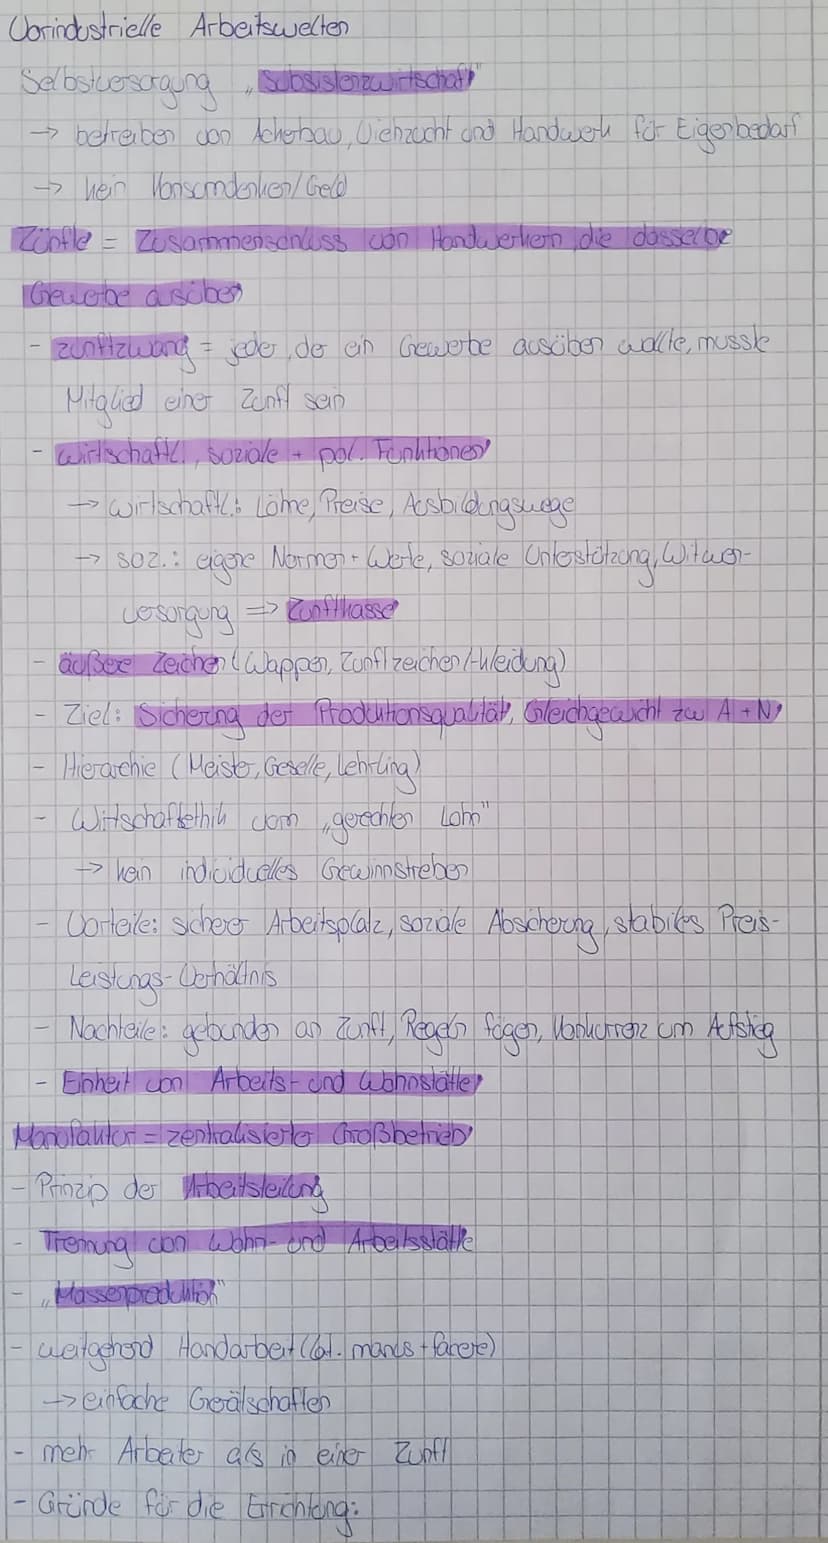 Vorindustrielle Arbeitswelten
Selbstversorgung „Subsistenzwirtschaft"
→ betreiben von Ackerbau, Viehzucht und Handwerk für Eigenbedarf
→ kein Konsumdenken/Geld
Zünfte = Zusammenschluss von Handwerkern, die dasselbe
Gewerbe ausüben
- Zunftzwang = jeder, der ein Gewerbe ausüben wollte, musste
Mitglied einer Zunft sein
- wirtschaftl., soziale + pol. Funktionen
→ wirtschaftl.: Löhne, Preise, Ausbildungswege
→ soz.: eigene Normen + Werte, soziale Unterstützung, Witwen-
versorgung => Zunftkasse
- äußere Zeichen (Wappen, Zunftzeichen/-kleidung)
- Ziel: Sicherung der Produktionsqualität, Gleichgewicht zw A + N
- Hierarchie (Meister, Geselle, Lehrling)
- Wirtschaftsethik vom „gerechten Lohn"
→ kein individuelles Gewinnstreben
- Vorteile: sicherer Arbeitsplatz, soziale Absicherung, stabiles Preis-
Leistungs-Verhältnis
- Nachteile: gebunden an Zunft, Regeln fügen, Konkurrenz um Aufstieg
- Einheit von Arbeits- und Wohnstätte
Manufaktur = zentralisierter Großbetrieb
- Prinzip der Arbeitsteilung
- Trennung von Wohn- und Arbeitsstätte
- „Massenproduktion"
- weitgehend Handarbeit (lat. manus + facere)
→ einfache Gerätschaften
- mehr Arbeiter als in einer Zunft
- Gründe für die Errichtung: